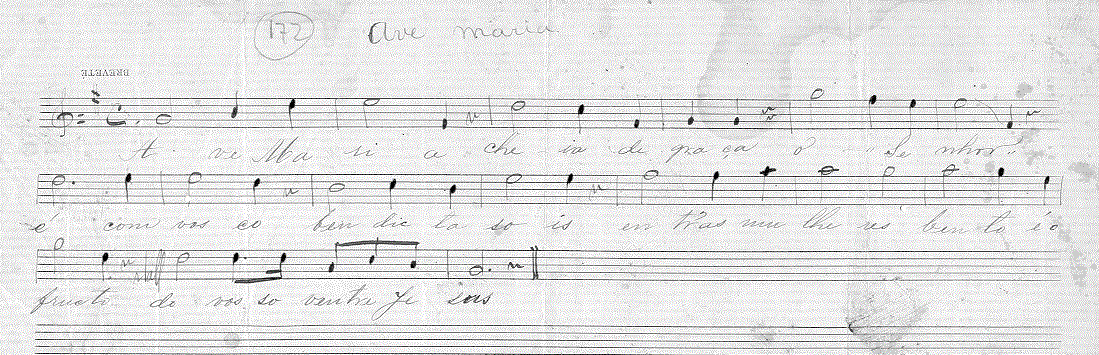 172 Ave maria
BREVETÉ
A ve Ma ri a che ia de gra ça o Se nhor
é com vos co ben dic ta so is en tras mu lhe res ben to é o
fructo do vos so ventre Je sus